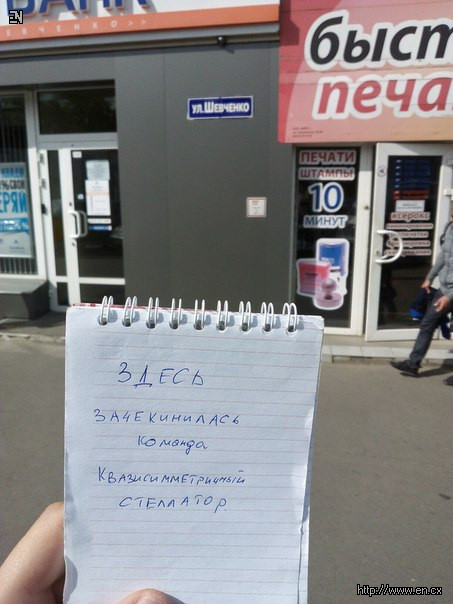 EN
БАНК
ШЕВЧЕНКО>>
быст
печа
ул.Шевченко
ПЕЧАТИ
ШТАМПЫ
10
МИНУТ
ксерокс
ЗДЕСЬ
ЗАЧЕКИНИЛАСЬ
команда
КВАЗИСИММЕТРИЧНЫЙ
СТЕЛЛАТОР
http://www.en.cx